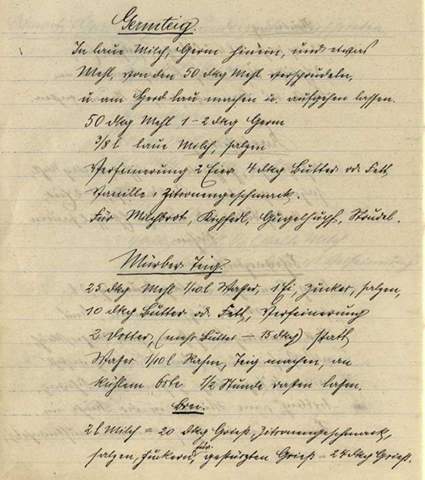 Germteig.
In laue Milch, Germ hinein, und etwas
Mehl, von den 50 dkg Mehl versprudeln,
u. am Herd lau machen u. aufgehen lassen.
50 dkg Mehl 1-2 dkg Germ
3/8 l laue Milch, salzen
Verfeinerung 2 Eier 4 dkg Butter od. Fett,
Vanille, Zitronengeschmack.
Für Milchbrot, Gugelhupf, Strudel.
Mürber Teig.
25 dkg Mehl 1/10 l Wasser, 1 Ei, Zucker, salzen,
10 dkg Butter od. Fett, Verfeinerung
2 Dotter, (mehr Butter - 15 dkg) statt
Wasser 1/10 l Rahm, Teig machen, an
kühlem Orte 1/2 Stunde rasten lassen.
Brei.
2 l Milch = 20 dkg Grieß, Zitronengeschmack,
salzen, zuckern, für gestürzten Grieß - 24 dkg Grieß.